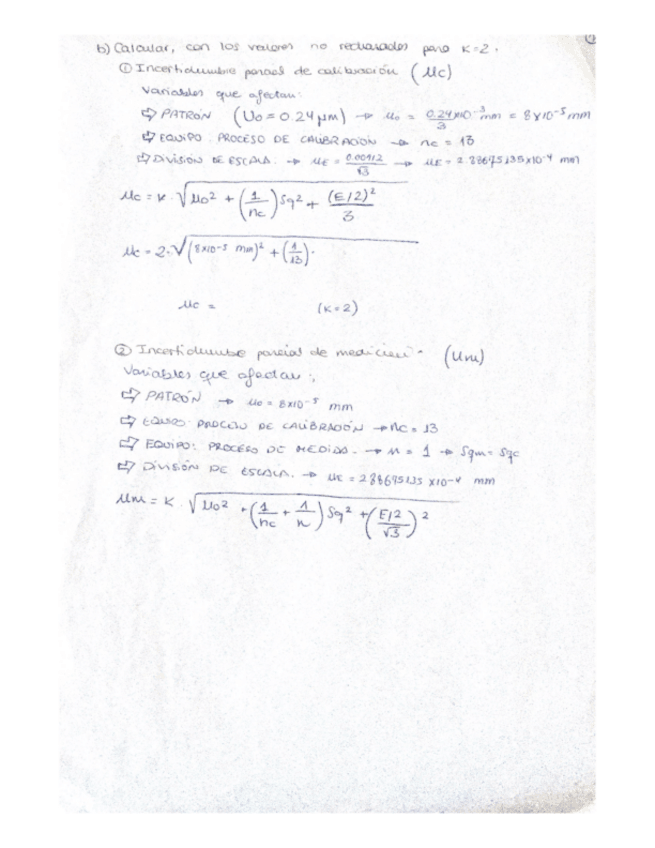 b) Calcular, con los valores no rechazados para K=2.
① Incertidumbre parcial de calibración (Uc)
Variables que afectan:
⇨ PATRÓN (Uo = 0.24 μm) → uo = 0.24x10⁻³/3 mm = 8x10⁻⁵ mm
⇨ EQUIPO: PROCESO DE CALIBRACIÓN → nc = 13
⇨ DIVISIÓN DE ESCALA: → uE = 0.001/2/√3 → uE = 2.88675135x10⁻⁴ mm
Uc = K · √(uo² + (1/nc) Sq² + (E/2)²/3)
Uc = 2 · √((8x10⁻⁵ mm)² + (1/13) ·
Uc = (K=2)
② Incertidumbre parcial de medición (Um)
Variables que afectan:
⇨ PATRÓN → uo = 8x10⁻⁵ mm
⇨ EQUIPO: PROCESO DE CALIBRACIÓN → nc = 13
⇨ EQUIPO: PROCESO DE MEDIDA. → n = 1 → Sqm = Sqc
⇨ DIVISIÓN DE ESCALA. → uE = 288675135 x10⁻⁴ mm
Um = K · √(uo² + (1/nc + 1/n) Sq² + (E/2/√3)²